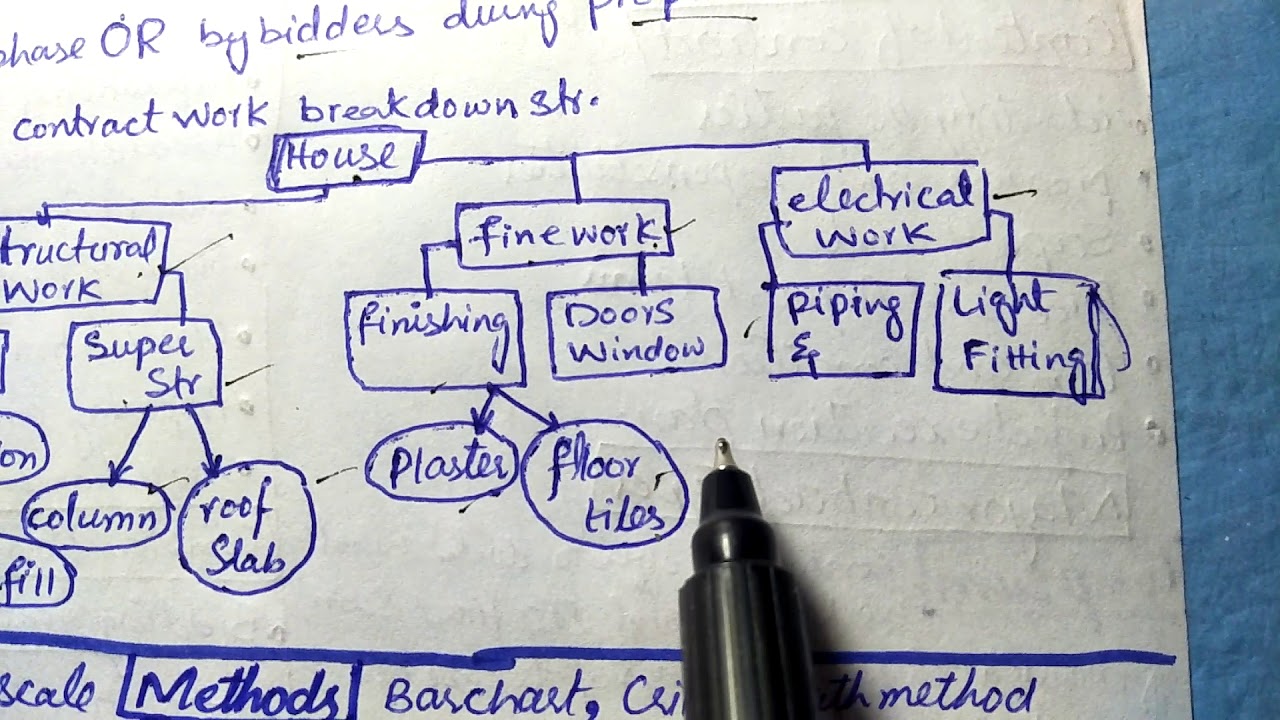 phase OR by bidders duing prep
contract work breakdown str.
House
tructural
work
finework
electrical
work
Super
Str
finishing
Doors
window
piping
&
Light
Fitting
on
column
roof
slab
plaster
floor
tiles
fill
scale Methods Barchart, Cri th method